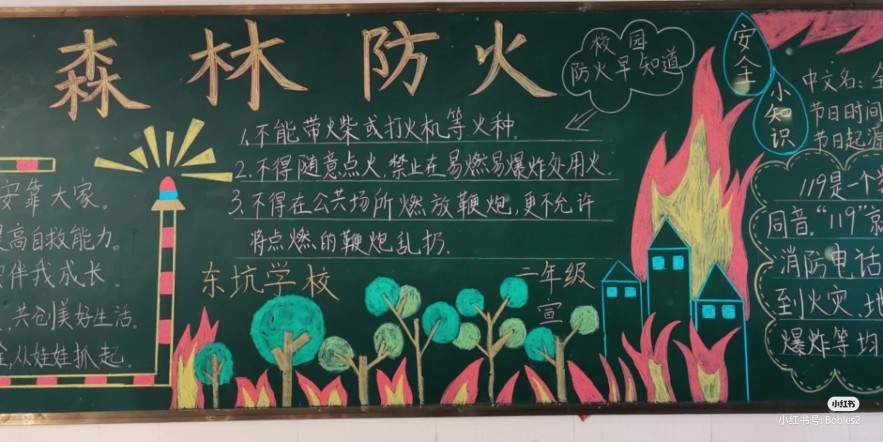 森林防火
校园
防火早知道
安全
小知识
1.不能带火柴或打火机等火种.
2.不得随意点火,禁止在易燃易爆炸处用火.
3.不得在公共场所燃放鞭炮,更不允许
将点燃的鞭炮乱扔.
东坑学校
二年级
宣
安靠大家。
提高自救能力。
伴我成长
共创美好生活.
从娃娃抓起.
中文名:
节日时间
节日起源
119是一个
同音."119"就
消防电话
到火灾,地
爆炸等均
小红书
小红书号: Bobles2